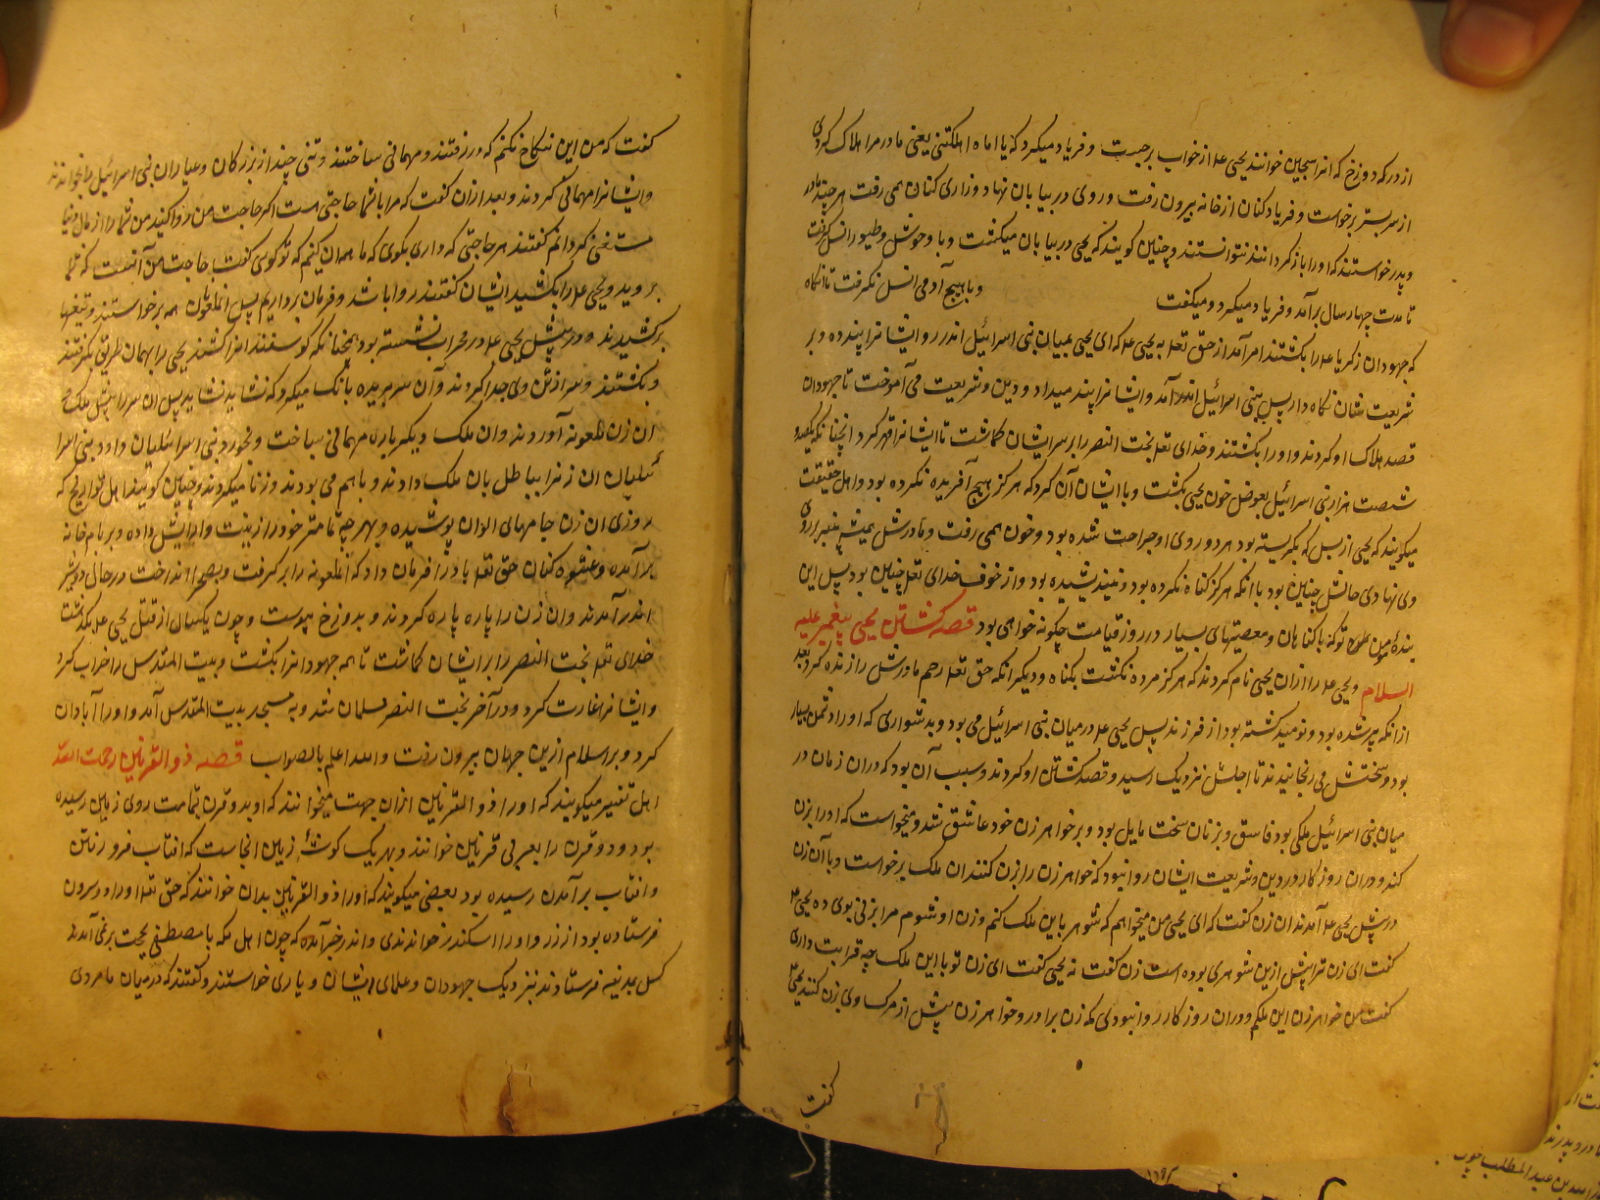 از درکه دوزخ که انرا سجین خوانند یحیی ع م از خواب برجست و فریاد میکرد که یا اماه اهلکتنی یعنی مادر مرا هلاک کردی
از سر بستر برخواست و فریاد کنان از خانه بیرون رفت و روی در بیابان نهاد و زاری کنان همی رفت هرچند مادر
و پدر خواستند که او را باز گردانند نتوانستند و چنین گویند که یحیی در بیابان میگشت و با وحوش و طیور انس گرفت
و با هیچ آدمی انس نگرفت تا انگاه
تا مدت چهار سال برآمد و فریاد میکرد و میگفت
که جهودان زکریا ع م را بکشتند امر آمد از حق تعم به یحیی ع م که ای یحیی بمیان بنی اسرائیل اندر رو و ایشانرا پند ده و بر
شریعت شان نگاه دار پس ببنی اسرائیل اندر آمد و ایشانرا پند میداد و دین و شریعت می آموخت تا جهودان
قصد هلاک او کردند و او را بکشتند و خدای تعم بخت النصر را بر سر ایشان گماشت تا ایشانرا قهر کرد انچنانکه یکصد و
شصت هزار بنی اسرائیل بعوض خون یحیی بکشت و با ایشان آن کرد که هرگز هیچ آفریده نکرده بود و اهل حقیقت
میگویند که یحیی از بس که بگریسته بود هر دو روی او جراحت شده بود و خون همی رفت و مادرش پنبه بر روی
وی نهادی حالش چنین بود با انکه هرگز گناه نکرده بود و نیندیشیده بود و از خوف خدای تعم چنین بود پس این
بندهٔ مومن تو که با گناهان و معصیتهای بسیار در روز قیامت چگونه خواهی بود قصه کشتن یحیی پیغمبر علیه
السلام و یحیی ع م را ازان یحیی نام کردند که هرگز مرده نگشت بگناه و دیگر انکه حق تعم رحم مادرش را زنده کرد بعد
ازانکه پیر شده بود و نومید گشته بود از فرزند پس یحیی ع م در میان بنی اسرائیل می بود و بدشواری که او را دشمن بسیار
بود و سختش می رنجانیدند تا اجلش نزدیک رسید و قصد کشتن او کردند و سبب آن بود که دران زمان در
میان بنی اسرائیل ملکی بود فاسق و بزنان سخت مایل بود و بر خواهر زن خود عاشق شد و میخواست که او را بزن
کند و دران روزگار در دین و شریعت ایشان روا نبود که خواهر زن را بزن کنند ان ملک برخواست و با آن زن
در پیش یحیی ع م آمدند ان زن گفت که ای یحیی من میخواهم که شوهر باین ملک کنم و زن او شوم مرا بزنی بوی ده یحیی ع م
گفت ای زن ترا پیش ازین شوهری بوده است زن گفت نه یحیی گفت ای زن تو با این ملک چه قرابت داری
گفت من خواهر زن این ملکم و دران روزگار روا نبودی که زن برادر و خواهر زن پیش از مرگ وی بزن کنند یحیی ع م
گفت
گفت که من این نکاح نکنم که ورزفتند و مهمانی ساختند و تنی چند از بزرگان و عیاران بنی اسرائیل را بخواندند
و ایشانرا مهمانی کردند و بعد ازان گفت که مرا با شما حاجتی است اگر حاجت من روا کنید من شما را از مال دنیا
مستغنی گردانم گفتند هر حاجتی که داری بگوی که ما همه ان کنیم که تو گوی گفت حاجت من آنست که شما
بروید و یحیی ع م را بکشید ایشان گفتند روا باشد و فرمان برداریم پس انملعونان همه برخواستند و تیغها
برکشیدند و در پیش یحیی ع م در محراب نشسته بود همچنانکه گوسفند انرا کشند یحیی را بهمان طریق بگرفتند
و بکشتند و سر از تن وی جدا کردند و آن سر بریده بانک میکرد که نشاید نشاید پس ان سر را پیش ملک و
ان زن ملعونه آوردند و ان ملک دیگر باره مهمانی ساخت و بخورد بنی اسرائیلیان داد و بنی اسرا
ئیلیان ان زنرا بباطل بان ملک دادند و با هم می بودند و زنا میکردند و چنین گویند اهل تواریخ که
روزی ان زن جامهای الوان پوشیده و بهر چه تمامتر خود را زینت و آرایش داده و بر بام خانه
برآمده و عشوه کنان حق تعم باد را فرمان داد که انملعونه را برگرفت و بصحرا انداخت در حال دو شیر
اندر آمدند و ان زن را پاره پاره کردند و بدوزخ پیوست و چون یکسال از قتل یحیی ع م بگذشت
خدای تعم بخت النصر را بر ایشان گماشت تا همه جهودانرا بکشت و بیت المقدس را خراب کرد
و ایشانرا غارت کرد و در آخر بخت النصر مسلمان شد و به مسجد بیت المقدس آمد و او را آبادان
کرد و بر اسلام ازین جهان بیرون رفت والله اعلم بالصواب قصه ذوالقرنین رحمت الله
اهل تفسیر میگویند که او را ذوالقرنین ازان جهت میخوانند که او بدو قرن تمامت روی زمین رسیده
بود و دو قرن را بعربی قرنین خوانند و بهر یک گوشهٔ زمین انجاست که افتاب فرو رفتن
و افتاب برآمدن رسیده بود بعضی میگویند که او را ذوالقرنین بدان خوانند که حق تعم او را دو سرون
فرستاده بود از زر و او را اسکندر خواندندی و اندر خبر آمده که چون اهل مکه با مصطفی بحجت برنمی آمدند
کس بمدینه فرستادند بنزدیک جهودان و علمای ایشان و یاری خواستند و گفتند که در میان ما مردی